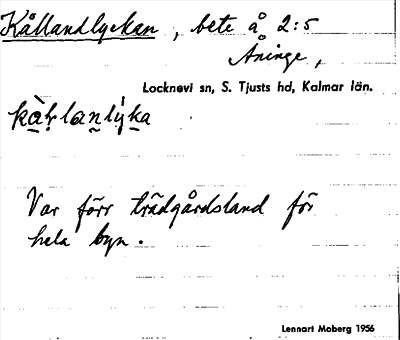 Kållandlyckan, bete å 2:5
Åninge,
Locknevi sn, S. Tjusts hd, Kalmar län.
Var förr trädgårdsland för
hela byn.
Lennart Moberg 1956